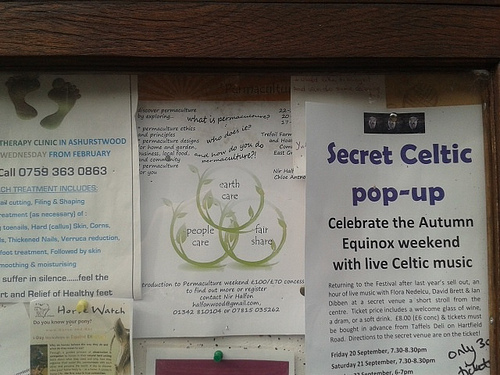 THERAPY CLINIC IN ASHURSTWOOD
WEDNESDAY FROM FEBRUARY
Call 0759 363 0863
CH TREATMENT INCLUDES:
ail cutting, Filing & Shaping
reatment (as necessary) of :
toenails, Hard (callus) Skin, Corns,
ls, Thickened Nails, Verruca reduction,
oot treatment, Followed by skin
moothing & moisturising
suffer in silence.....feel the
rt and Relief of Healthy feet
Horse Watch
Do you know your pony?
discover permaculture
by exploring...
* permaculture ethics
and principles
* permaculture designs
for home and garden,
business, local food,
and community
* permaculture
for you
what is permaculture?
who does it?
and how do you do
permaculture?!
22-
20
17-
Trefoil Farm
and Hos
Com
East G
Nir Hall
Chloe Anthe
earth
care
people
care
fair
share
troduction to Permaculture weekend £100/£70 concess
to find out more or register
contact Nir Hallon
hallonwood@gmail.com,
01342 810104 or 07815 035262
Secret Celtic
pop-up
Celebrate the Autumn
Equinox weekend
with live Celtic music
Returning to the Festival after last year's sell out, an
hour of live music with Flora Nedelcu, David Brett & Ian
Dibben at a secret venue a short stroll from the
centre. Ticket price includes a welcome glass of wine,
a dram, or a soft drink. £8.00 (£6 conc) & tickets must
be bought in advance from Taffels Deli on Hartfield
Road. Directions to the secret venue are on the ticket!
Friday 20 September, 7.30-8.30pm
Saturday 21 September, 7.30-8.30pm
22 September, 6-7pm
only 30
tickets